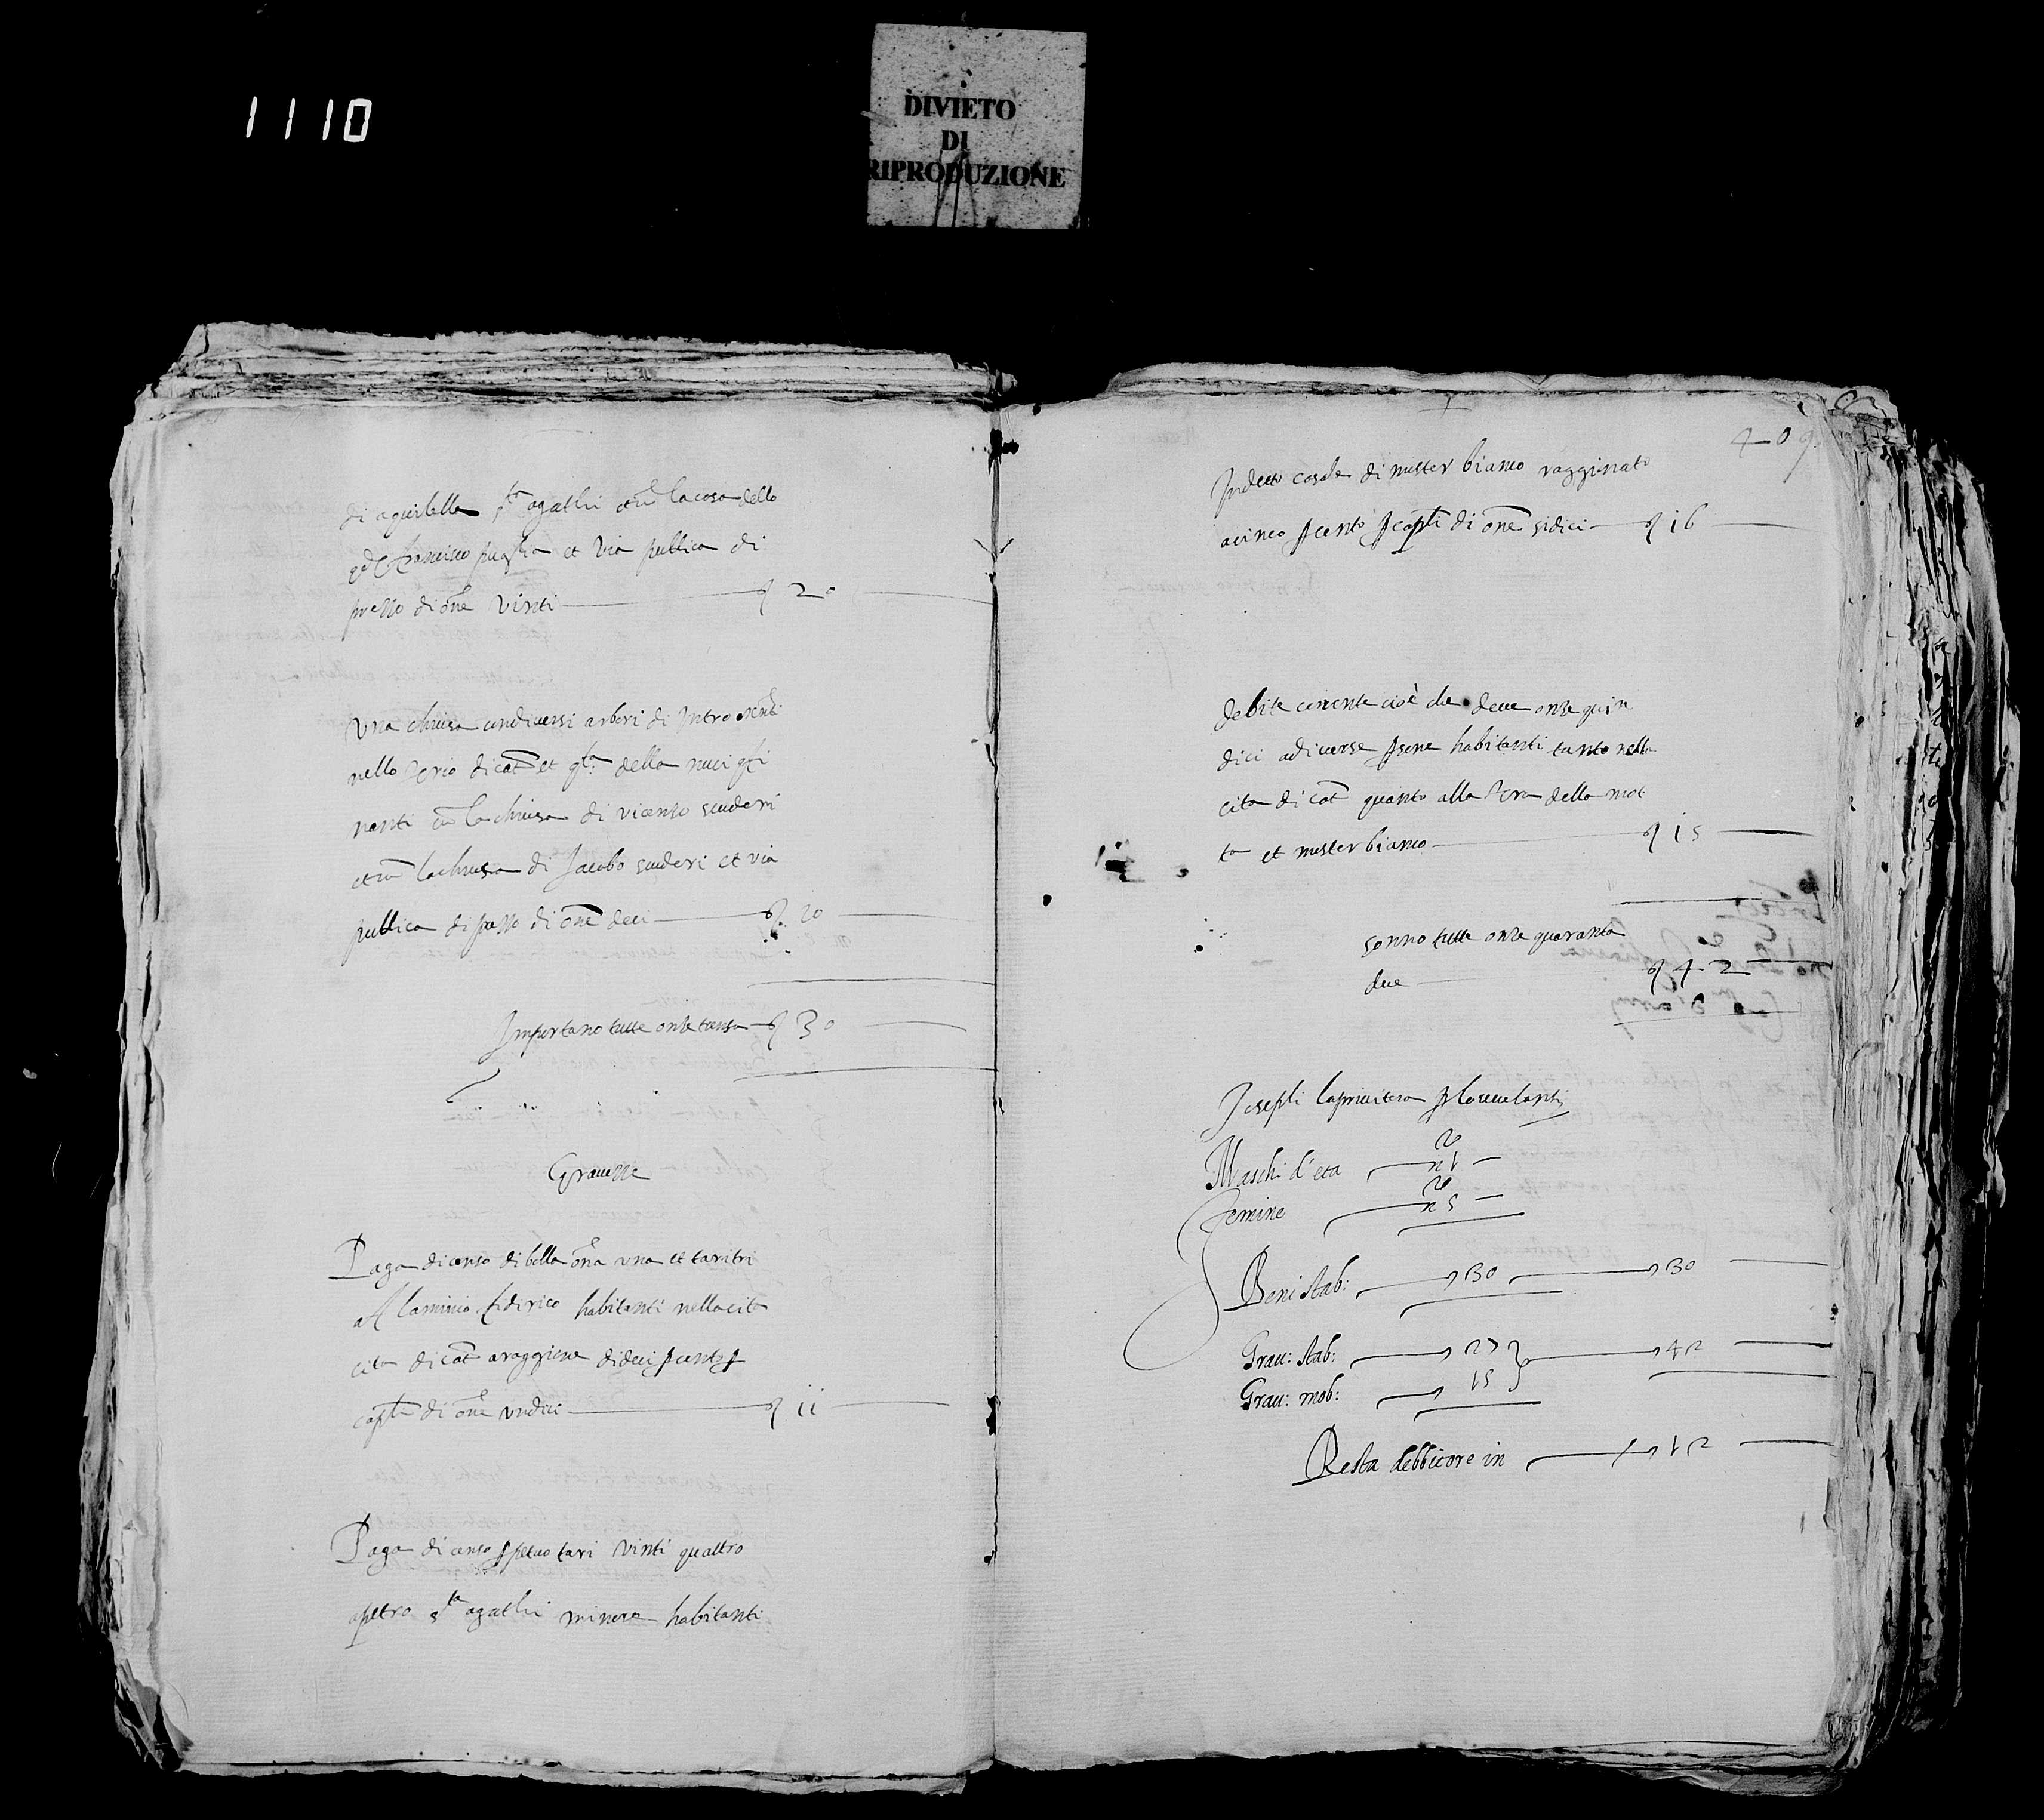 1110
DIVIETO
DI
RIPRODUZIONE
di aguilella sta agathi et cu la casa dello
francisco puglia et via publica di
prezzo di onze vinti 20
Una chiusa con diversi arbori di Intro
nello di cata et qta della nuci
nanti cu la chiusa di vicenso scuderi
et cu la chiusa di Jacobo scuderi et via
publica di prezzo di onze deci 10
Importano tutte onze trenta 30
Gravezze
Paga di censo di bolla onza una et tari tri
a flaminio fidirico habitanti nella cita
cita di cata a raggione di deci per cento per
capli di onze undici 11
Paga di censo perpetuo tari vinti quattro
a petro sta agathi minore habitanti
409
In detto casale di mister bianco raggionato
a cinco per cento per capli di onze sidici 16
Debite corrente cioè che deve onze quin
dici a diverse persone habitanti tanto nella
cita di cata quanto alla terra della mot
ta et mister bianco 15
sonno tutte onze quaranta
due 42
Joseph lapruitera
Maschi d'eta n 1
Femine n 5
Beni stab: 30 30
Grav: stab: 27 42
Grav: mob: 15
Resta debbitore in 12